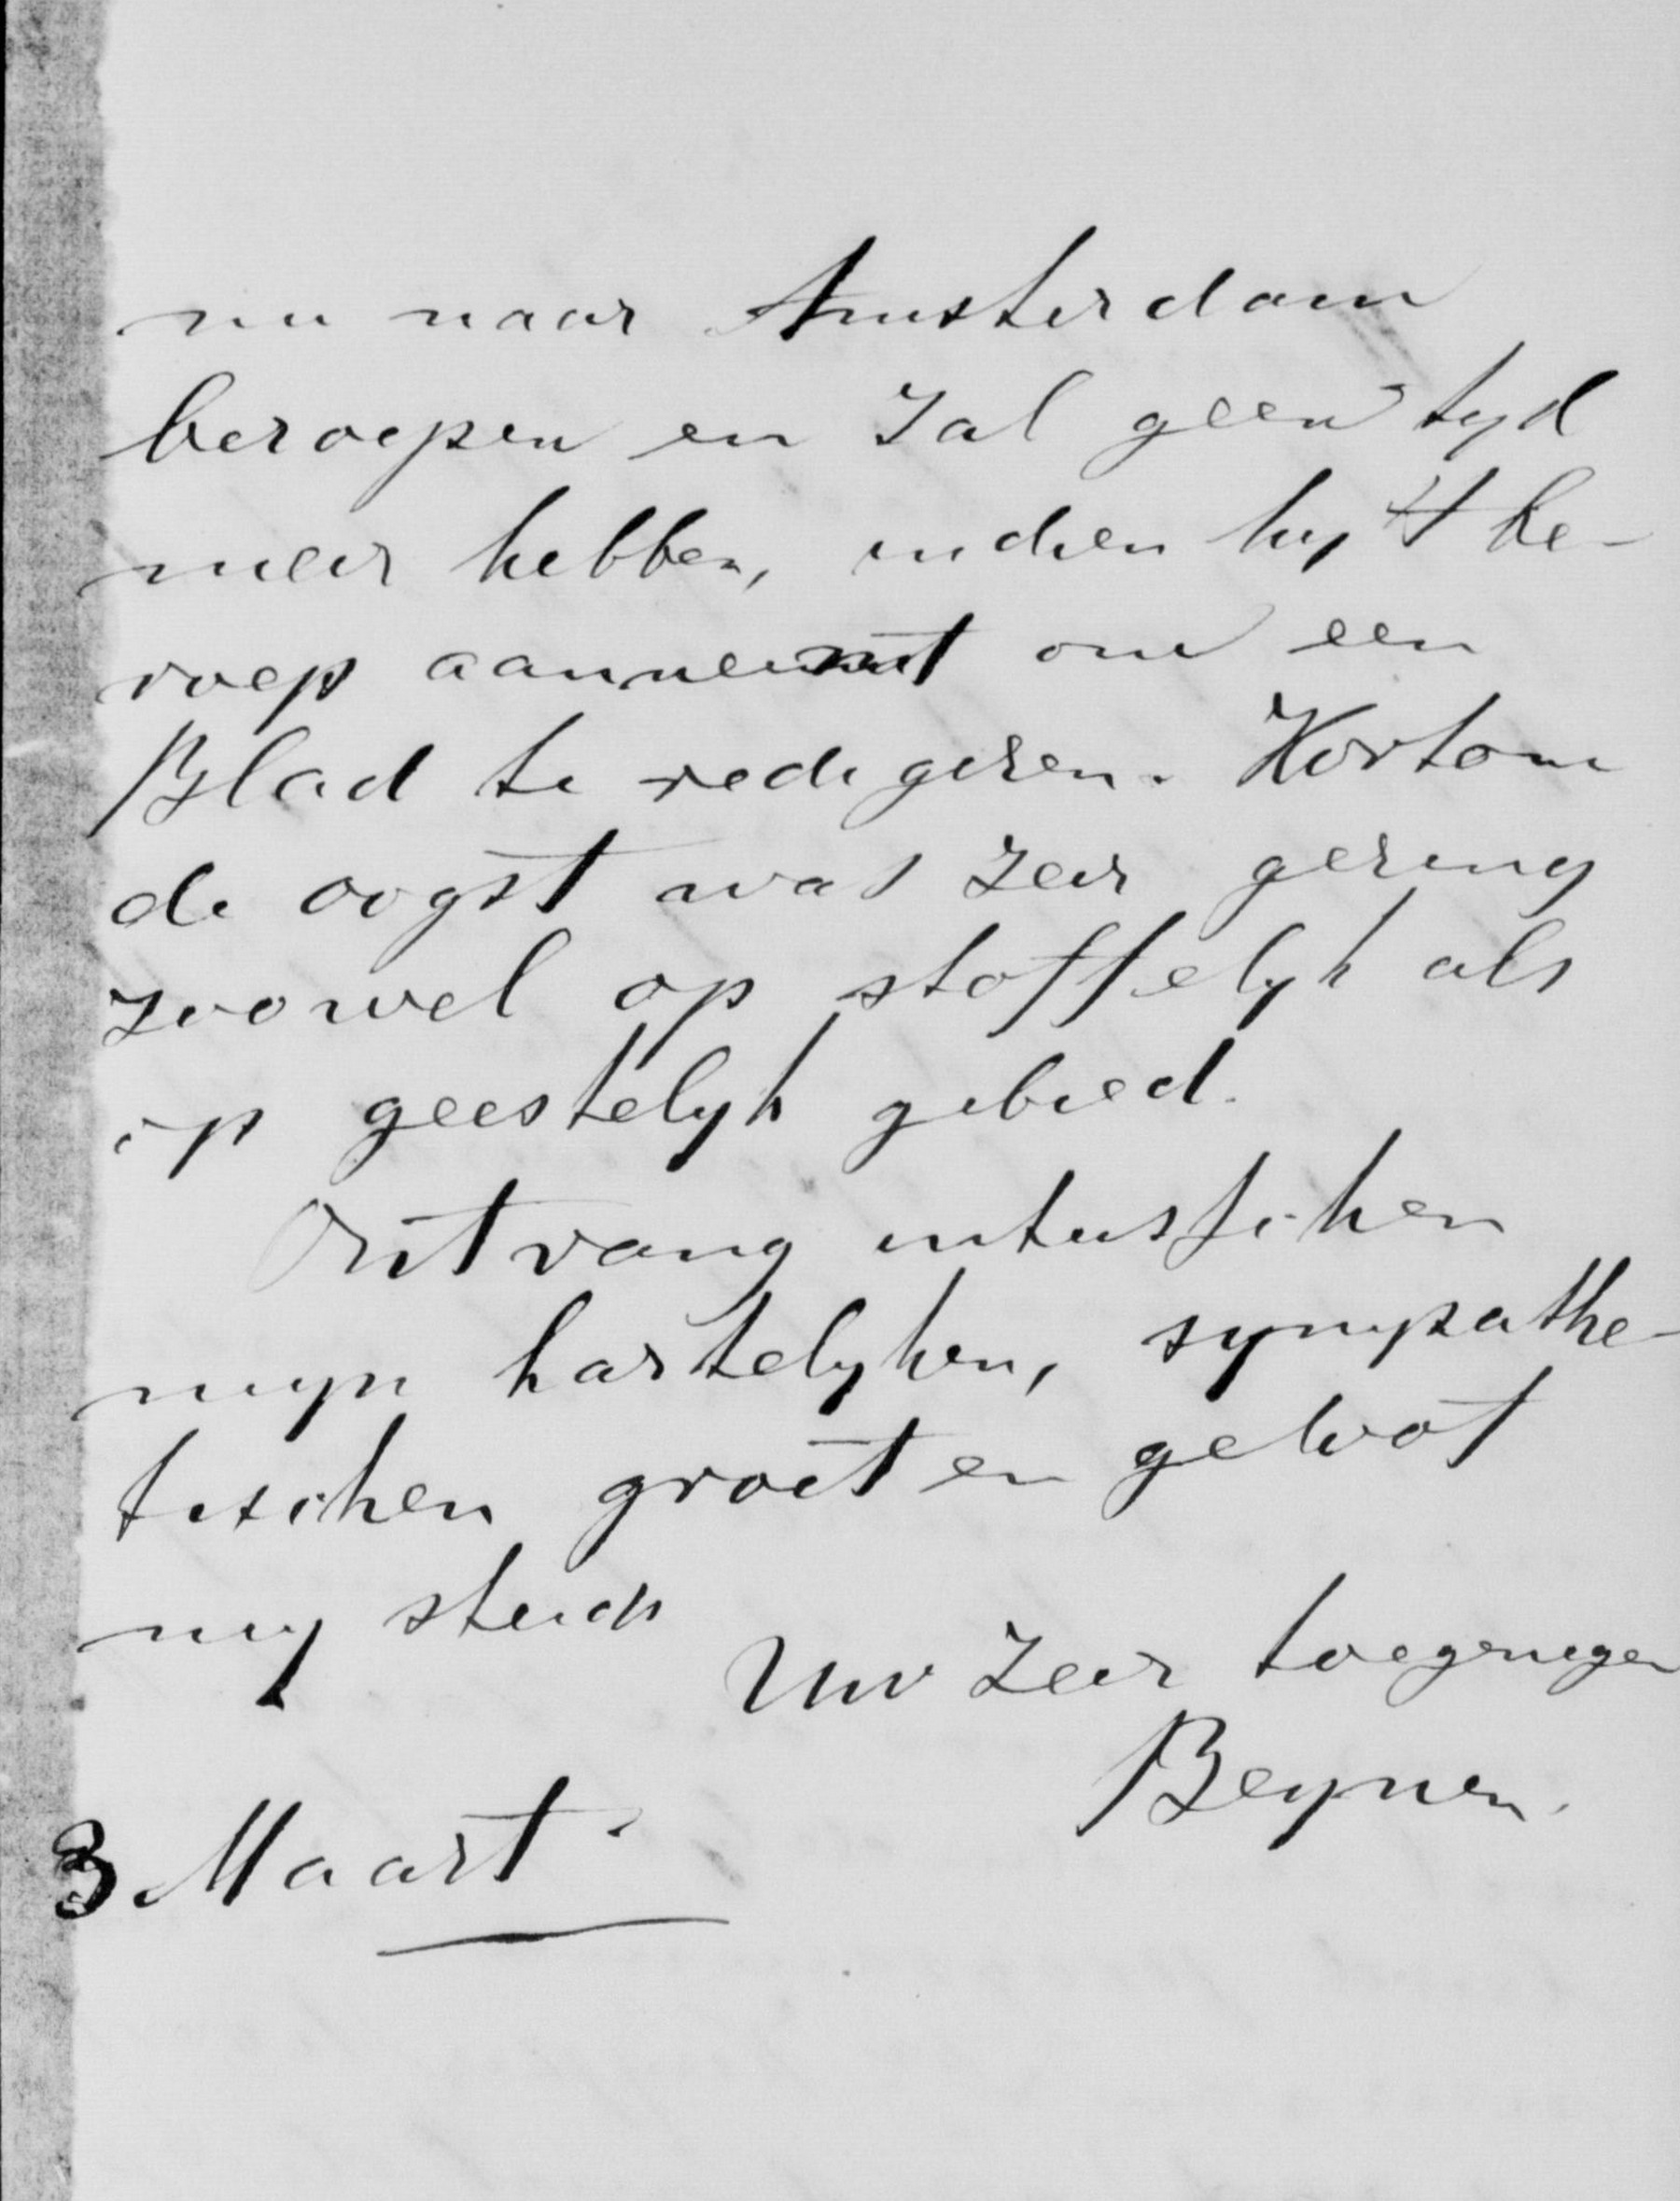 nu naar Amsterdam
beroepen en zal geen tyd
meer hebben, indien hy 't be-
roep aanneemt om een
Blad te redigeren. Kortom
de oogst was zeer gering
zoowel op stoffelyk als
op geestelyk gebied.
Ontvang intusschen
myn hartelyken, sympathe-
tischen groet en geloof
my steeds
Uw zeer toegenegen
Beynen.
3 Maart.